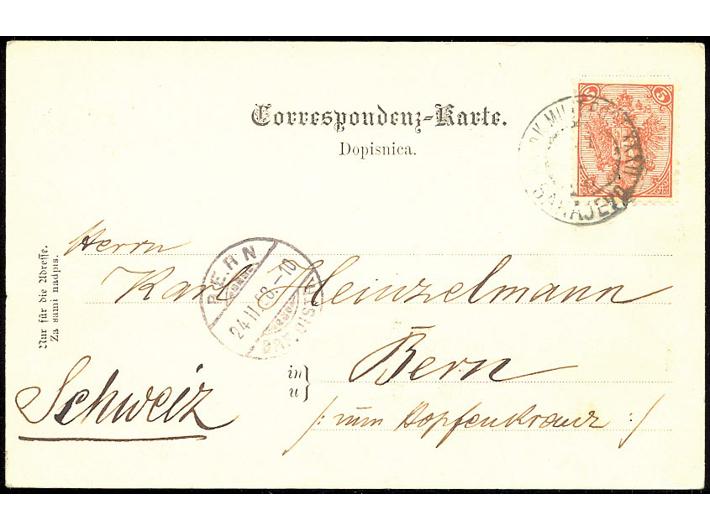 Correspondenz-Karte.
Dopisnica.
5 5
SARAJEVO
Nur für die Adresse.
Za sami nadpis.
Herrn
BERN
24.II.98.-10
Karl Heinzelmann
in
u } Bern
Schweiz
/: zum Hopfenkranz :/